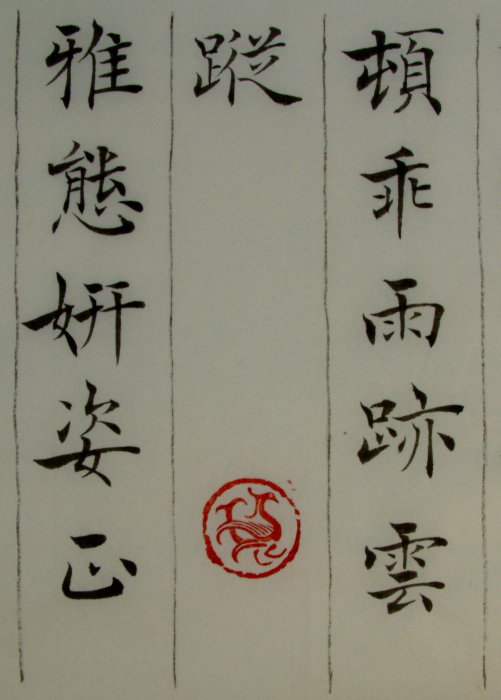 頓乖雨跡雲
蹤
雅態妍姿正